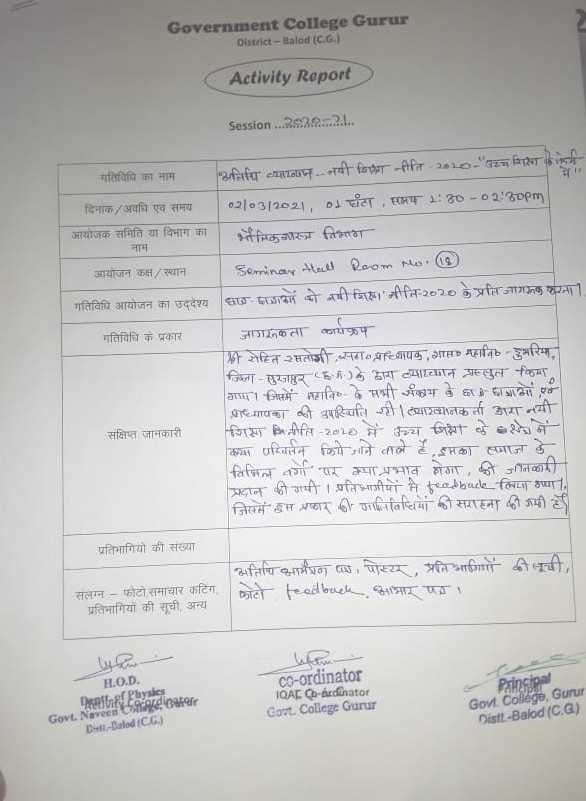 Government College Gurur
District – Balod (C.G.)
Activity Report
Session ...2020-21...
गतिविधि का नाम
अतिथि व्याख्यान - नयी शिक्षा नीति - 2020 - "उच्च शिक्षा के संदर्भ में"
दिनांक/अवधि एवं समय
02/03/2021, 01 घंटा, समय 1:30 - 02:30pm
आयोजक समिति या विभाग का नाम
भौतिकशास्त्र विभाग
आयोजन कक्ष/स्थान
Seminar Hall Room No. 12
गतिविधि आयोजन का उद्देश्य
छात्र-छात्राओं को नयी शिक्षा नीति-2020 के प्रति जागरूक करना।
गतिविधि के प्रकार
जागरूकता कार्यक्रम
संक्षिप्त जानकारी
श्री रोहित रस्तोगी, सहा० प्राध्यापक, शास० महावि०
जिला - सुरजपुर (छ.ग.) के द्वारा व्याख्यान प्रस्तुत किया
गया। जिसमें महावि० के सभी संकाय के छात्र छात्राओं, एवं
प्राध्यापकों की उपस्थिति रही। व्याख्यानकर्ता द्वारा नयी
शिक्षा नीति-2020 में उच्च शिक्षा के क्षेत्र में
क्या परिवर्तन किये जाने वाले हैं, इसका समाज के
विभिन्न वर्गों पर क्या प्रभाव होगा, की जानकारी
प्रदान की गयी। प्रतिभागीयों से feedback लिया गया,
जिसमें इस प्रकार की गतिविधियों की सराहना की गयी है।
प्रतिभागियों की संख्या
संलग्न – फोटो,समाचार कटिंग,
प्रतिभागियों की सूची, अन्य
अतिथि आमंत्रण पत्र, पोस्टर, प्रतिभागियों की सूची,
फोटो, feedback, आभार पत्र।
H.O.D.
Deptt. of Physics
Activity Co-ordinator
Govt. Naveen College, Gurur
Distt.-Balod (C.G.)
co-ordinator
IQAC Co-ordinator
Govt. College Gurur
Principal
Principal
Govt. College, Gurur
Distt.-Balod (C.G)